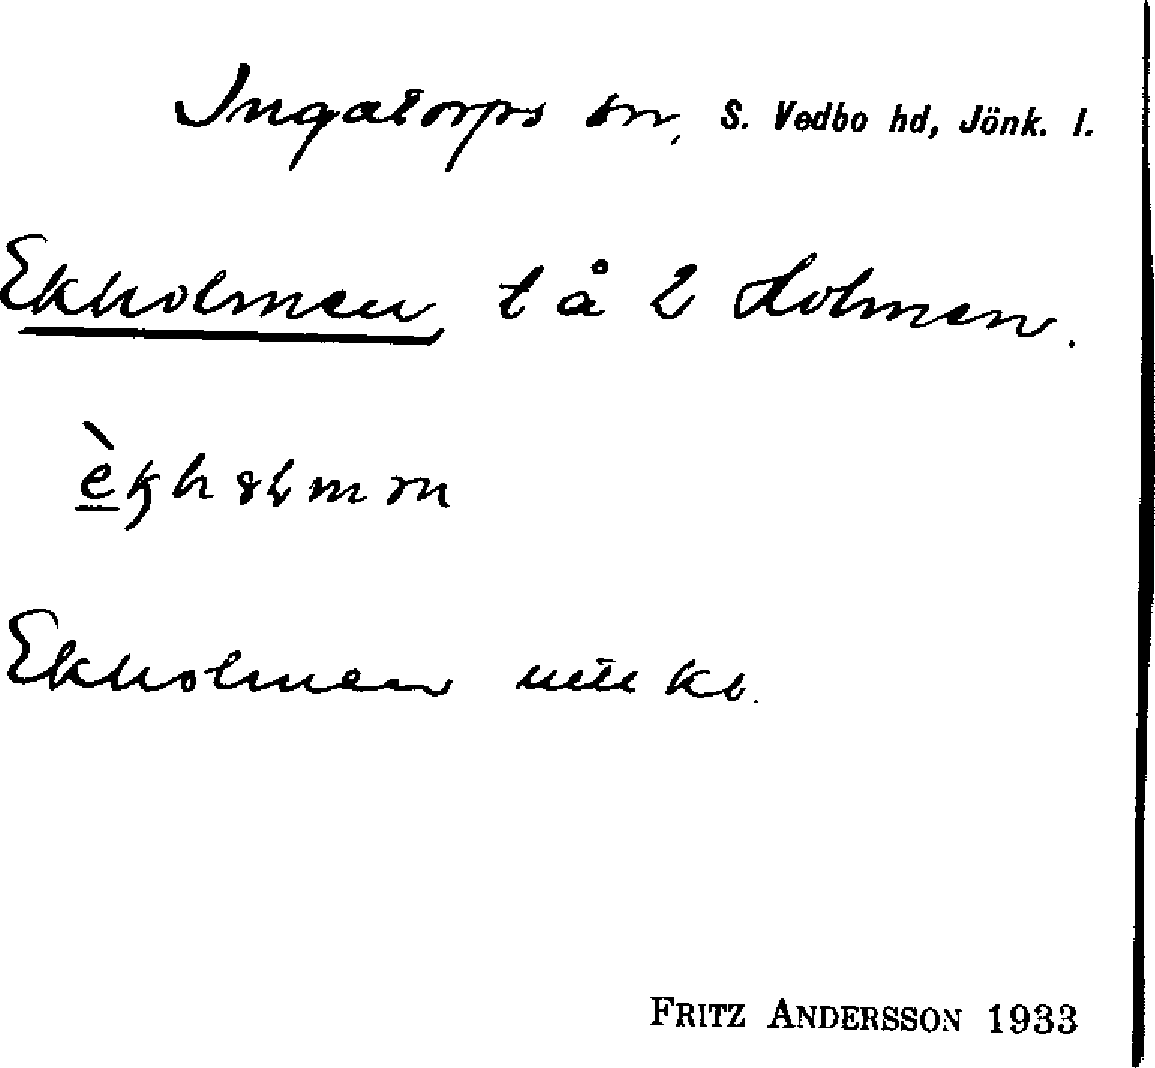 Ingatorps sn, S. Vedbo hd, Jönk. l.
Ekholmen t å 2 Holmen.
Ekholmen
FRITZ ANDERSSON 1933